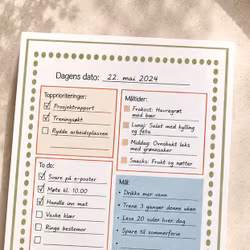 Dagens dato: 22. mai 2024
Topprioriteringer:
Prosjektrapport
Treningsøkt
Rydde arbeidsplassen
Måltider:
Frokost: Havregrøt
med bær
Lunsj: Salat med kylling
og feta
Middag: Ovnsbakt laks
med grønnsaker
Snacks: Frukt og nøtter
To do:
Svare på e-poster
Møte kl. 10.00
Handle inn mat
Vaske klær
Ringe bestemor
Mål:
Drikke mer vann
Trene 3 ganger denne uken
Lese 20 sider hver dag
Spare til sommerferie